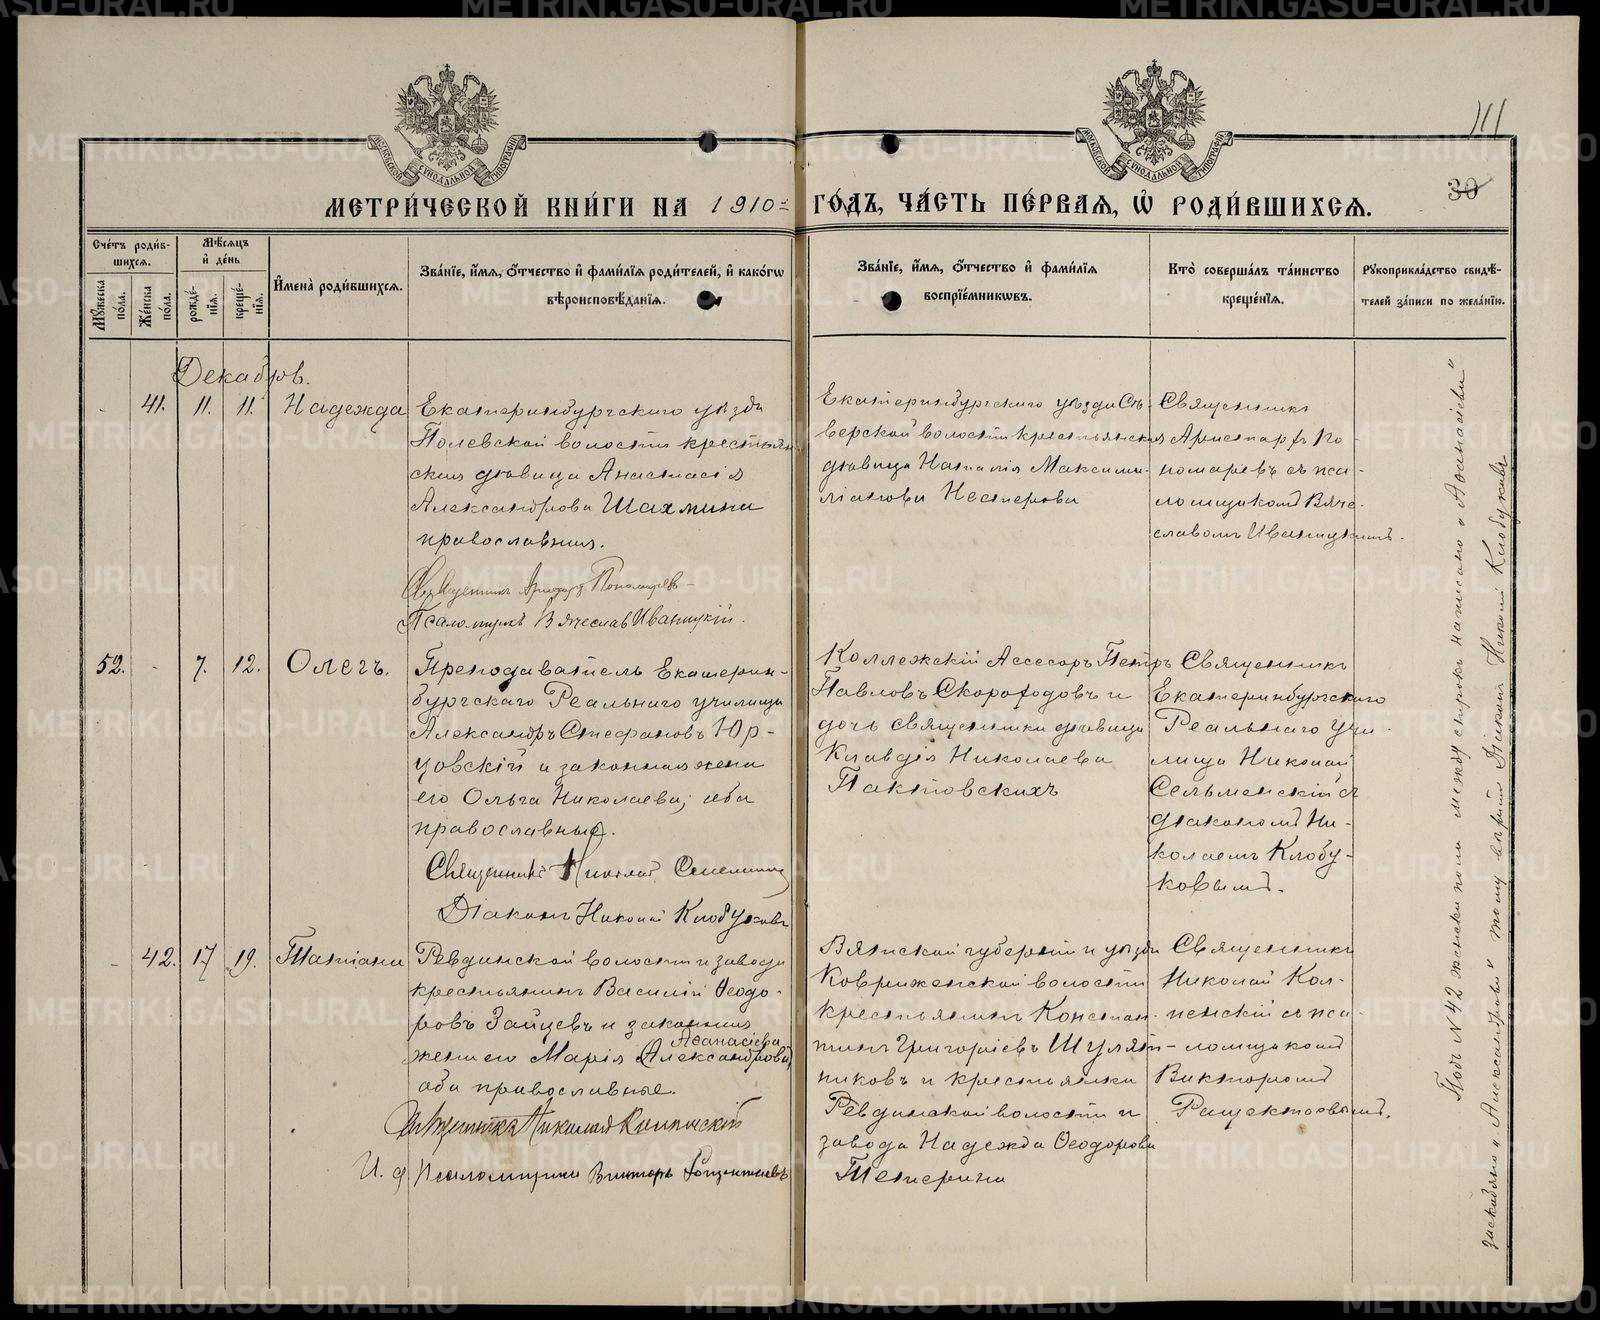 111
30
МОСКОВСКОЙ СѴНОДАЛЬНОЙ ТИПОГРАФІИ
МОСКОВСКОЙ СѴНОДАЛЬНОЙ ТИПОГРАФІИ
МЕТРИ́ЧЕСКОЙ КНИ́ГИ НА 1910 ГО́ДЪ, ЧА́СТЬ ПЕ́РВАѦ, Ѽ РОДИ́ВШИХСѦ.
Сче́тъ роди́в-
шихсѧ.
Мꙋжеска по́ла.
Же́нска по́ла.
Мѣ́сѧцъ и҆ де́нь
рожде́-
нїѧ.
креще́-
нїѧ.
И҆мена̀ роди́вшихсѧ.
Зва́нїе, и҆́мѧ, ѻ҆́тчество и҆ фами́лїѧ роди́телей, и҆ како́гѡ
вѣроисповѣ́данїѧ.
Зва́нїе, и҆́мѧ, ѻ҆́тчество и҆ фами́лїѧ
воспрїе́мникѡвъ.
Кто̀ соверша́лъ та́инство
креще́нїѧ.
Рꙋкоприкла́дство свидѣ́-
телей за́писи по жела́нїю.
Декабрь.
41. 11. 11. Надежда
Екатеринбургскаго уѣзда
Полевской волости крестьян-
ская дѣвица Анастасія
Александрова Шахмина
православная.
Священникъ Аристархъ Пономаревъ
Псаломщикъ Вячеславъ Иваницкій.
Екатеринбургскаго уѣзда Сѣ-
верской волости крестьянская
дѣвица Наталія Максими-
ліанова Нестерова
Священникъ
Аристархъ По-
номаревъ съ пса-
ломщикомъ Вяче-
славомъ Иваницкимъ.
52. - 7. 12. Олегъ.
Преподаватель Екатерин-
бургскаго Реальнаго училища
Александръ Стефановъ Юр-
цовскій и законная жена
его Ольга Николаева, оба
православные.
Священникъ Николай
Діаконъ Николай Клобуковъ
Коллежскій Ассесоръ Петръ
Павловъ Скороходовъ и
дочь священника дѣвица
Клавдія Николаева
Пактовскихъ
Священникъ
Екатеринбургскаго
Реальнаго учи-
лища Николай
Сельменскій съ
діакономъ Ни-
колаемъ Клобу-
ковымъ.
- 42. 17 19. Татіана
Ревдинской волости и завода
крестьянинъ Василій Ѳеодо-
ровъ Зайцевъ и законная
Аѳанасіева
жена его Марія Александрова,
оба православные.
Священникъ Николай Колпенскій
И. д. Псаломщика Викторъ
Вятской губерніи и уѣзда
Ковриженской волости
крестьянинъ Констан-
тинъ Григоріевъ Шулят-
никовъ и крестьянка
Ревдинской волости и
завода Надежда Ѳеодорова
Тетерина
Священникъ
Николай Кол-
пенскій съ пса-
ломщикомъ
Викторомъ
Подъ № 42 женска пола между строкъ написано „Аѳанасіева"
заскоблено „Александрова" тому вѣрить. Діаконъ Николай Клобуковъ